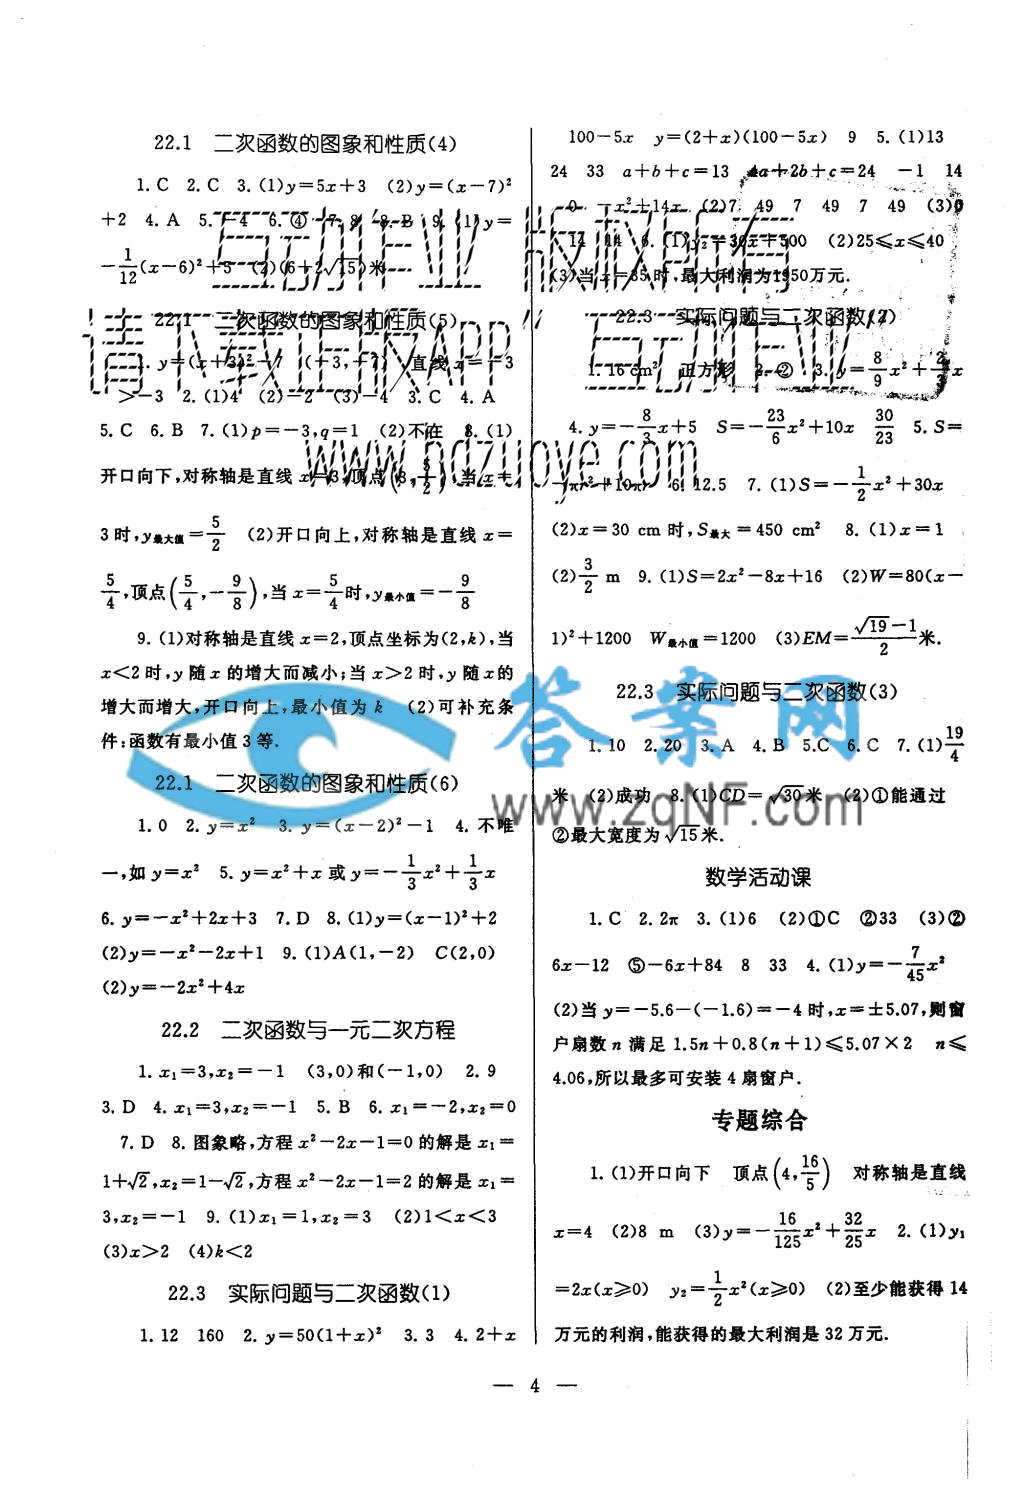 22.1 二次函数的图象和性质(4)
1. C 2. C 3. (1)y=5x+3 (2)y=(x-7)²
+2 4. A 5. 6. ④ 7. 8 8. B 9. (1)y=
-1/12(x-6)²+5 (2)(6+2√15)米
22.1 二次函数的图象和性质(5)
1. y=(x+3)²-7 直线x=-3
>-3 2. (1)4 (2)-2 (3)-4 3. C 4. A
5. C 6. B 7. (1)p=-3,q=1 (2)不在 8. (1)
开口向下,对称轴是直线x=3,顶点(3,5/2),当x=
3时,y最大值=5/2 (2)开口向上,对称轴是直线x=
5/4,顶点(5/4,-9/8),当x=5/4时,y最小值=-9/8
9. (1)对称轴是直线x=2,顶点坐标为(2,k),当
x<2时,y随x的增大而减小;当x>2时,y随x的
增大而增大,开口向上,最小值为k (2)可补充条
件:函数有最小值3等.
22.1 二次函数的图象和性质(6)
1. 0 2. y=x² 3. y=(x-2)²-1 4. 不唯
一,如y=x² 5. y=x²+x或y=-1/3x²+1/3x
6. y=-x²+2x+3 7. D 8. (1)y=(x-1)²+2
(2)y=-x²-2x+1 9. (1)A(1,-2) C(2,0)
(2)y=-2x²+4x
22.2 二次函数与一元二次方程
1. x₁=3,x₂=-1 (3,0)和(-1,0) 2. 9
3. D 4. x₁=3,x₂=-1 5. B 6. x₁=-2,x₂=0
7. D 8. 图象略,方程x²-2x-1=0的解是x₁=
1+√2,x₂=1-√2,方程x²-2x-1=2的解是x₁=
3,x₂=-1 9. (1)x₁=1,x₂=3 (2)1<x<3
(3)x>2 (4)k<2
22.3 实际问题与二次函数(1)
1. 12 160 2. y=50(1+x)² 3. 3 4. 2+x
100-5x y=(2+x)(100-5x) 9 5. (1)13
24 33 a+b+c=13 4a+2b+c=24 -1 14
0 -x²+14x (2)7 49 7 49 7 49 (3)0
14 14 6. (1)y₂=30x+300 (2)25≤x≤40
(3)当x=35时,最大利润为1950万元.
22.3 实际问题与二次函数(2)
1. 16 cm² 正方形 2. ② 3. y=8/9x²+2/3x
4. y=-8/3x+5 S=-23/6x²+10x 30/23 5. S=
-πr²+10πr 6. 12.5 7. (1)S=-1/2x²+30x
(2)x=30 cm时,S最大=450 cm² 8. (1)x=1
(2)3/2 m 9. (1)S=2x²-8x+16 (2)W=80(x-
1)²+1200 W最小值=1200 (3)EM=(√19-1)/2米.
22.3 实际问题与二次函数(3)
1. 10 2. 20 3. A 4. B 5. C 6. C 7. (1)19/4
米 (2)成功 8. (1)CD=√30米 (2)①能通过
②最大宽度为√15米.
数学活动课
1. C 2. 2π 3. (1)6 (2)①C ②33 (3)②
6x-12 ⑤-6x+84 8 33 4. (1)y=-7/45x²
(2)当y=-5.6-(-1.6)=-4时,x=±5.07,则窗
户扇数n满足1.5n+0.8(n+1)≤5.07×2 n≤
4.06,所以最多可安装4扇窗户.
专题综合
1. (1)开口向下 顶点(4,16/5) 对称轴是直线
x=4 (2)8 m (3)y=-16/125x²+32/25x 2. (1)y₁
=2x(x≥0) y₂=1/2x²(x≥0) (2)至少能获得14
万元的利润,能获得的最大利润是32万元.
— 4 —
答案网
www.zqNF.com
www.hdzuoye.com